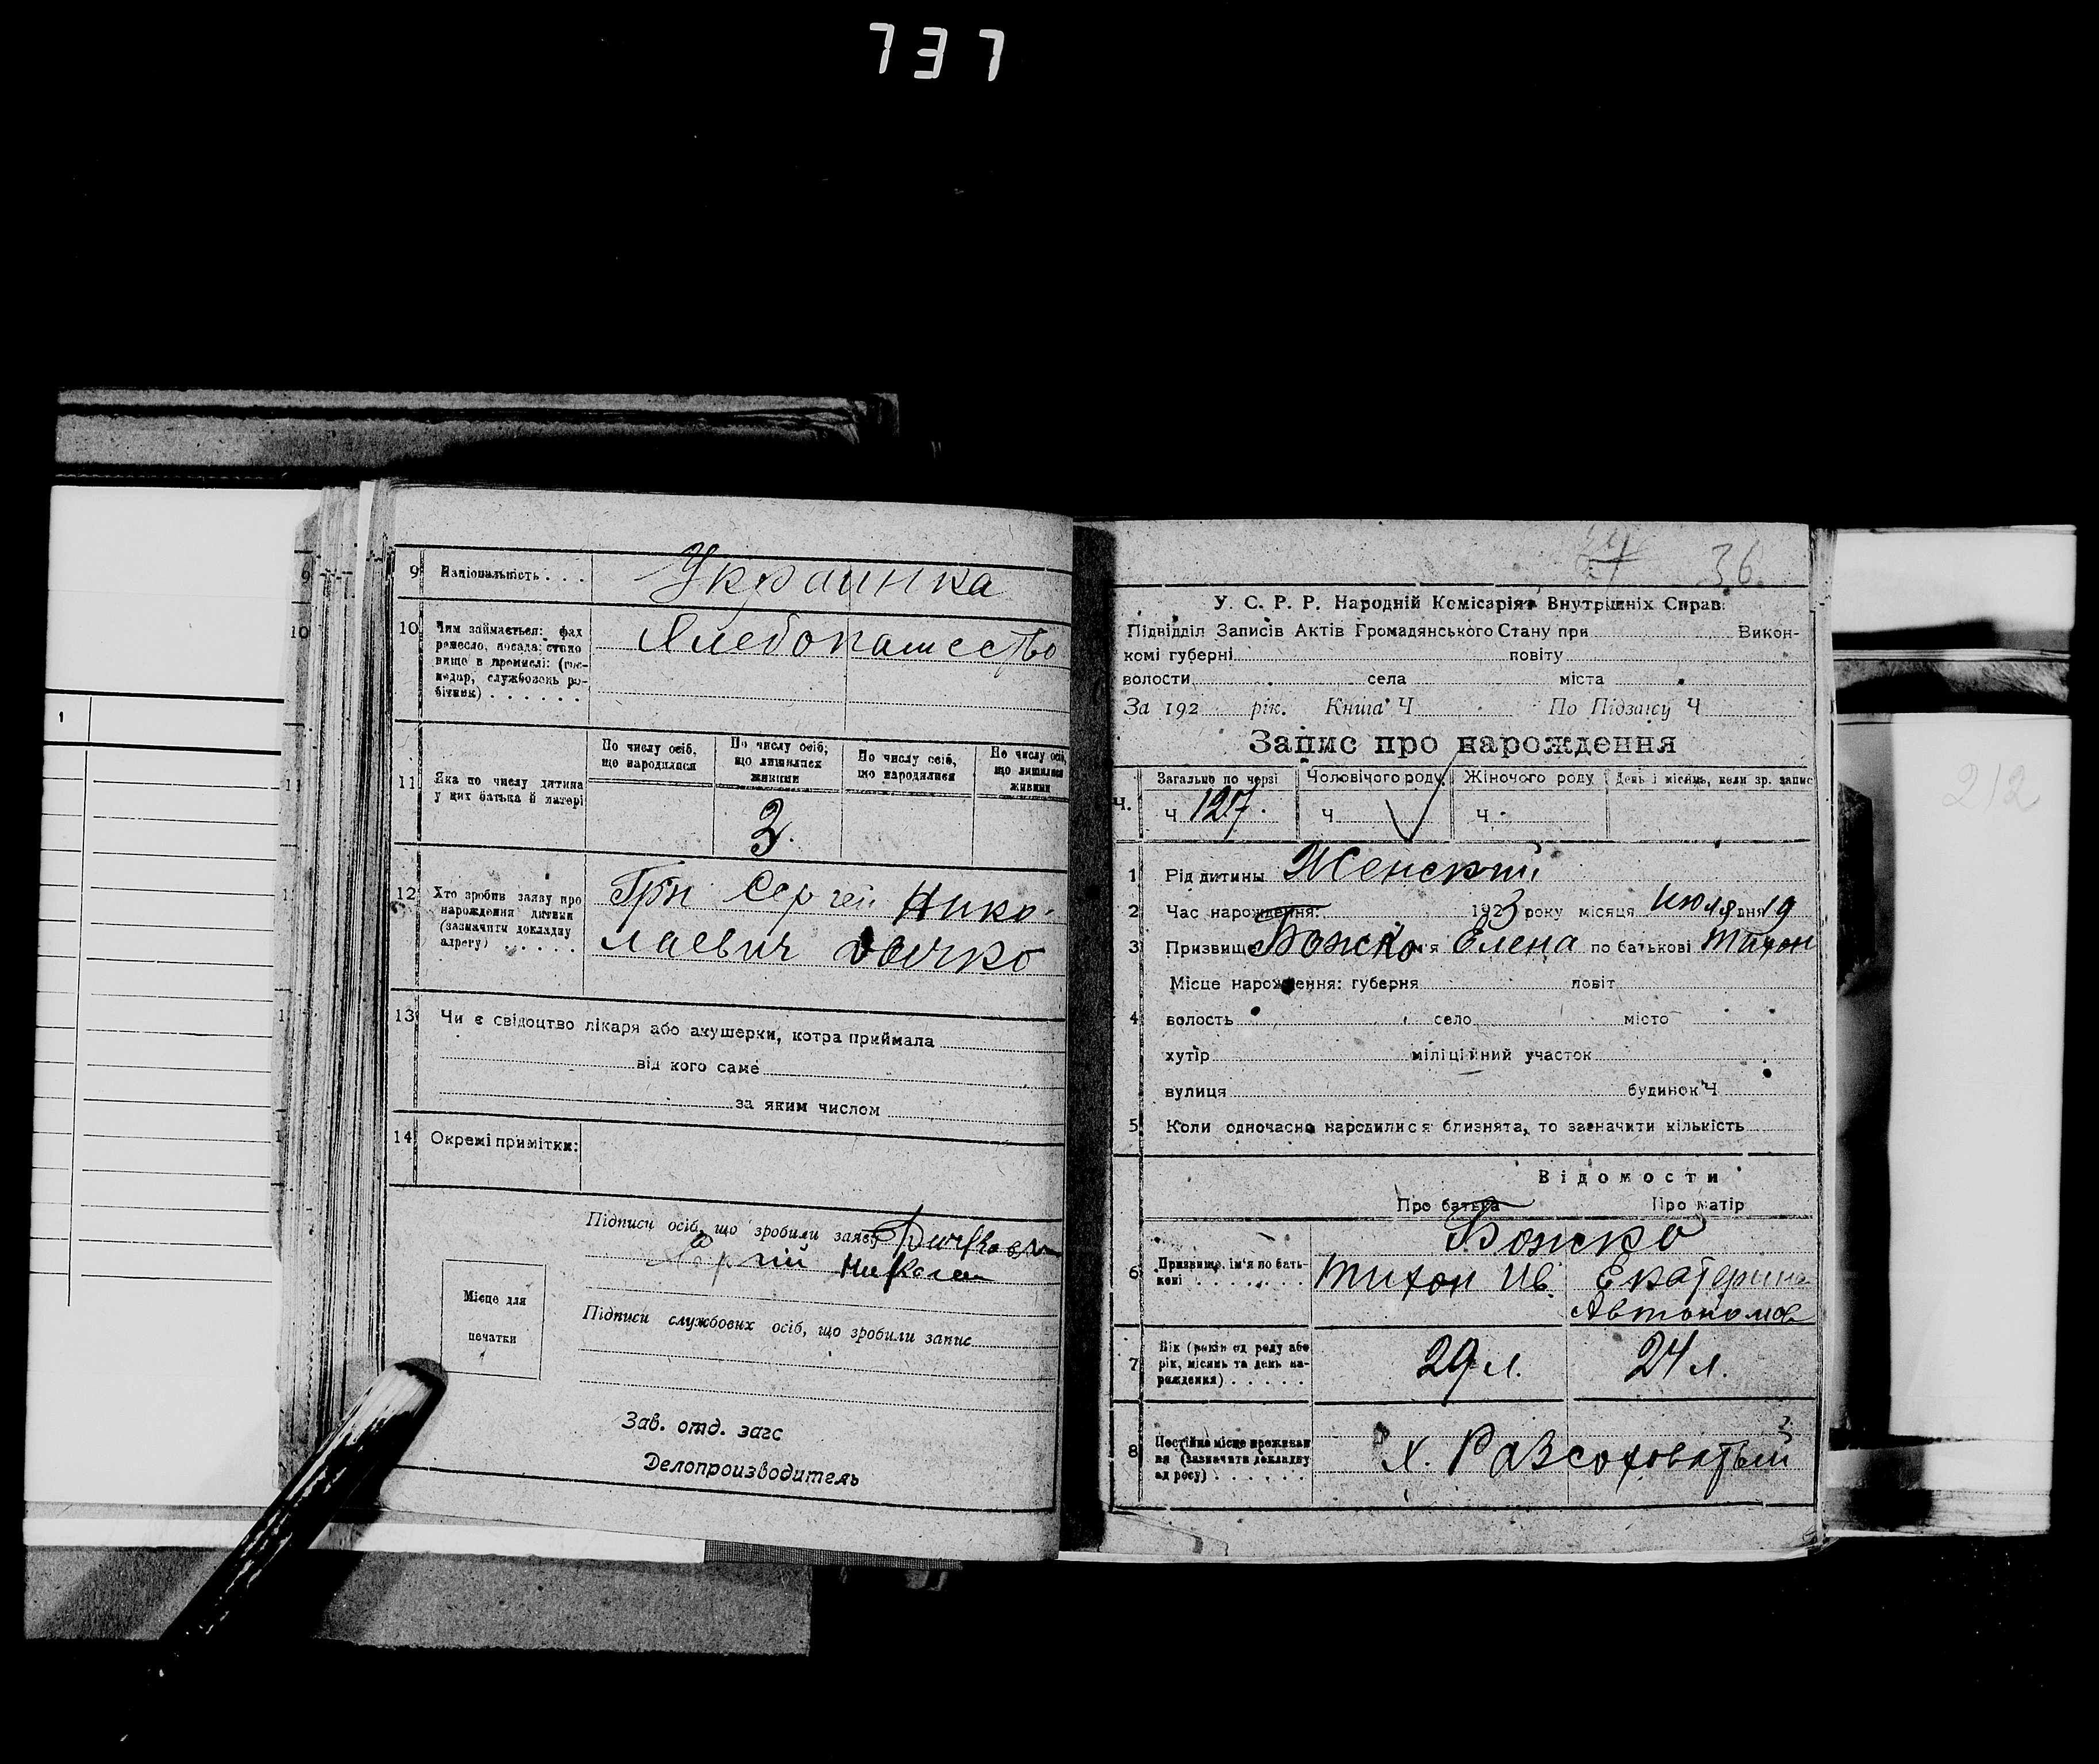 737
9 Національність . . . Украинка
10 Чим займається: фах Хлебопашество
ремесло, посада: стано
вище в промислі: (гос-
подар, службовець ро-
бітник) . . . . . .
11 Яка по числу дитина
у цих батька й матері
По числу осіб,
що народилися
По числу осіб,
що лишилися
живими
По числу осіб,
що народилися
По числу осіб,
що лишилися
живими
3.
12 Хто зробив заяву про
нарождення дитини
(зазначити докладну
адресу) . . . . . .
Грн Сергей Нико-
лаевич Дичко
13 Чи є свідоцтво лікаря або акушерки, котра приймала
від кого саме
за яким числом
14 Окремі примітки:
Підписи осіб, що зробили заяву
Николаев
Місце для
печатки
Підписи службових осіб, що зробили запис
Зав. отд. загс
Делопроизводитель
36
У. С. Р. Р. Народній Комісаріят Внутрішніх Справ
Підвідділ Записів Актів Громадянського Стану при Викон-
комі губерні повіту
волости села міста
За 192 рік. Книга Ч По Підзапису Ч
Запис про нарождення
Загально по черзі Чоловічого роду Жіночого роду День і місяць, коли зр. запис
Ч. Ч 127. Ч Ч
1 Рід дитини Женский
2 Час нарождення: 1923 року місяця Июля дня 19
3 Призвище Божко ім'я Елена по батькові Тихон
4 Місце нарождення: губерня повіт
волость село місто
хутір міліційний участок
вулиця будинок Ч
5 Коли одночасно народилися близнята, то зазначити кількість
Відомости
Про батька Про матір
Божко
6 Призвище, ім'я по бать-
кові . . . . . . .
Тихон Ив. Екатерина
Автономов
7 Вік (років од роду або
рік, місяць та день на-
рождення) . . . . .
29 л. 24 л.
8 Постійне місце проживан
ня (зазначити докладну
адресу) . . . . . .
х. Разсоховатый
212